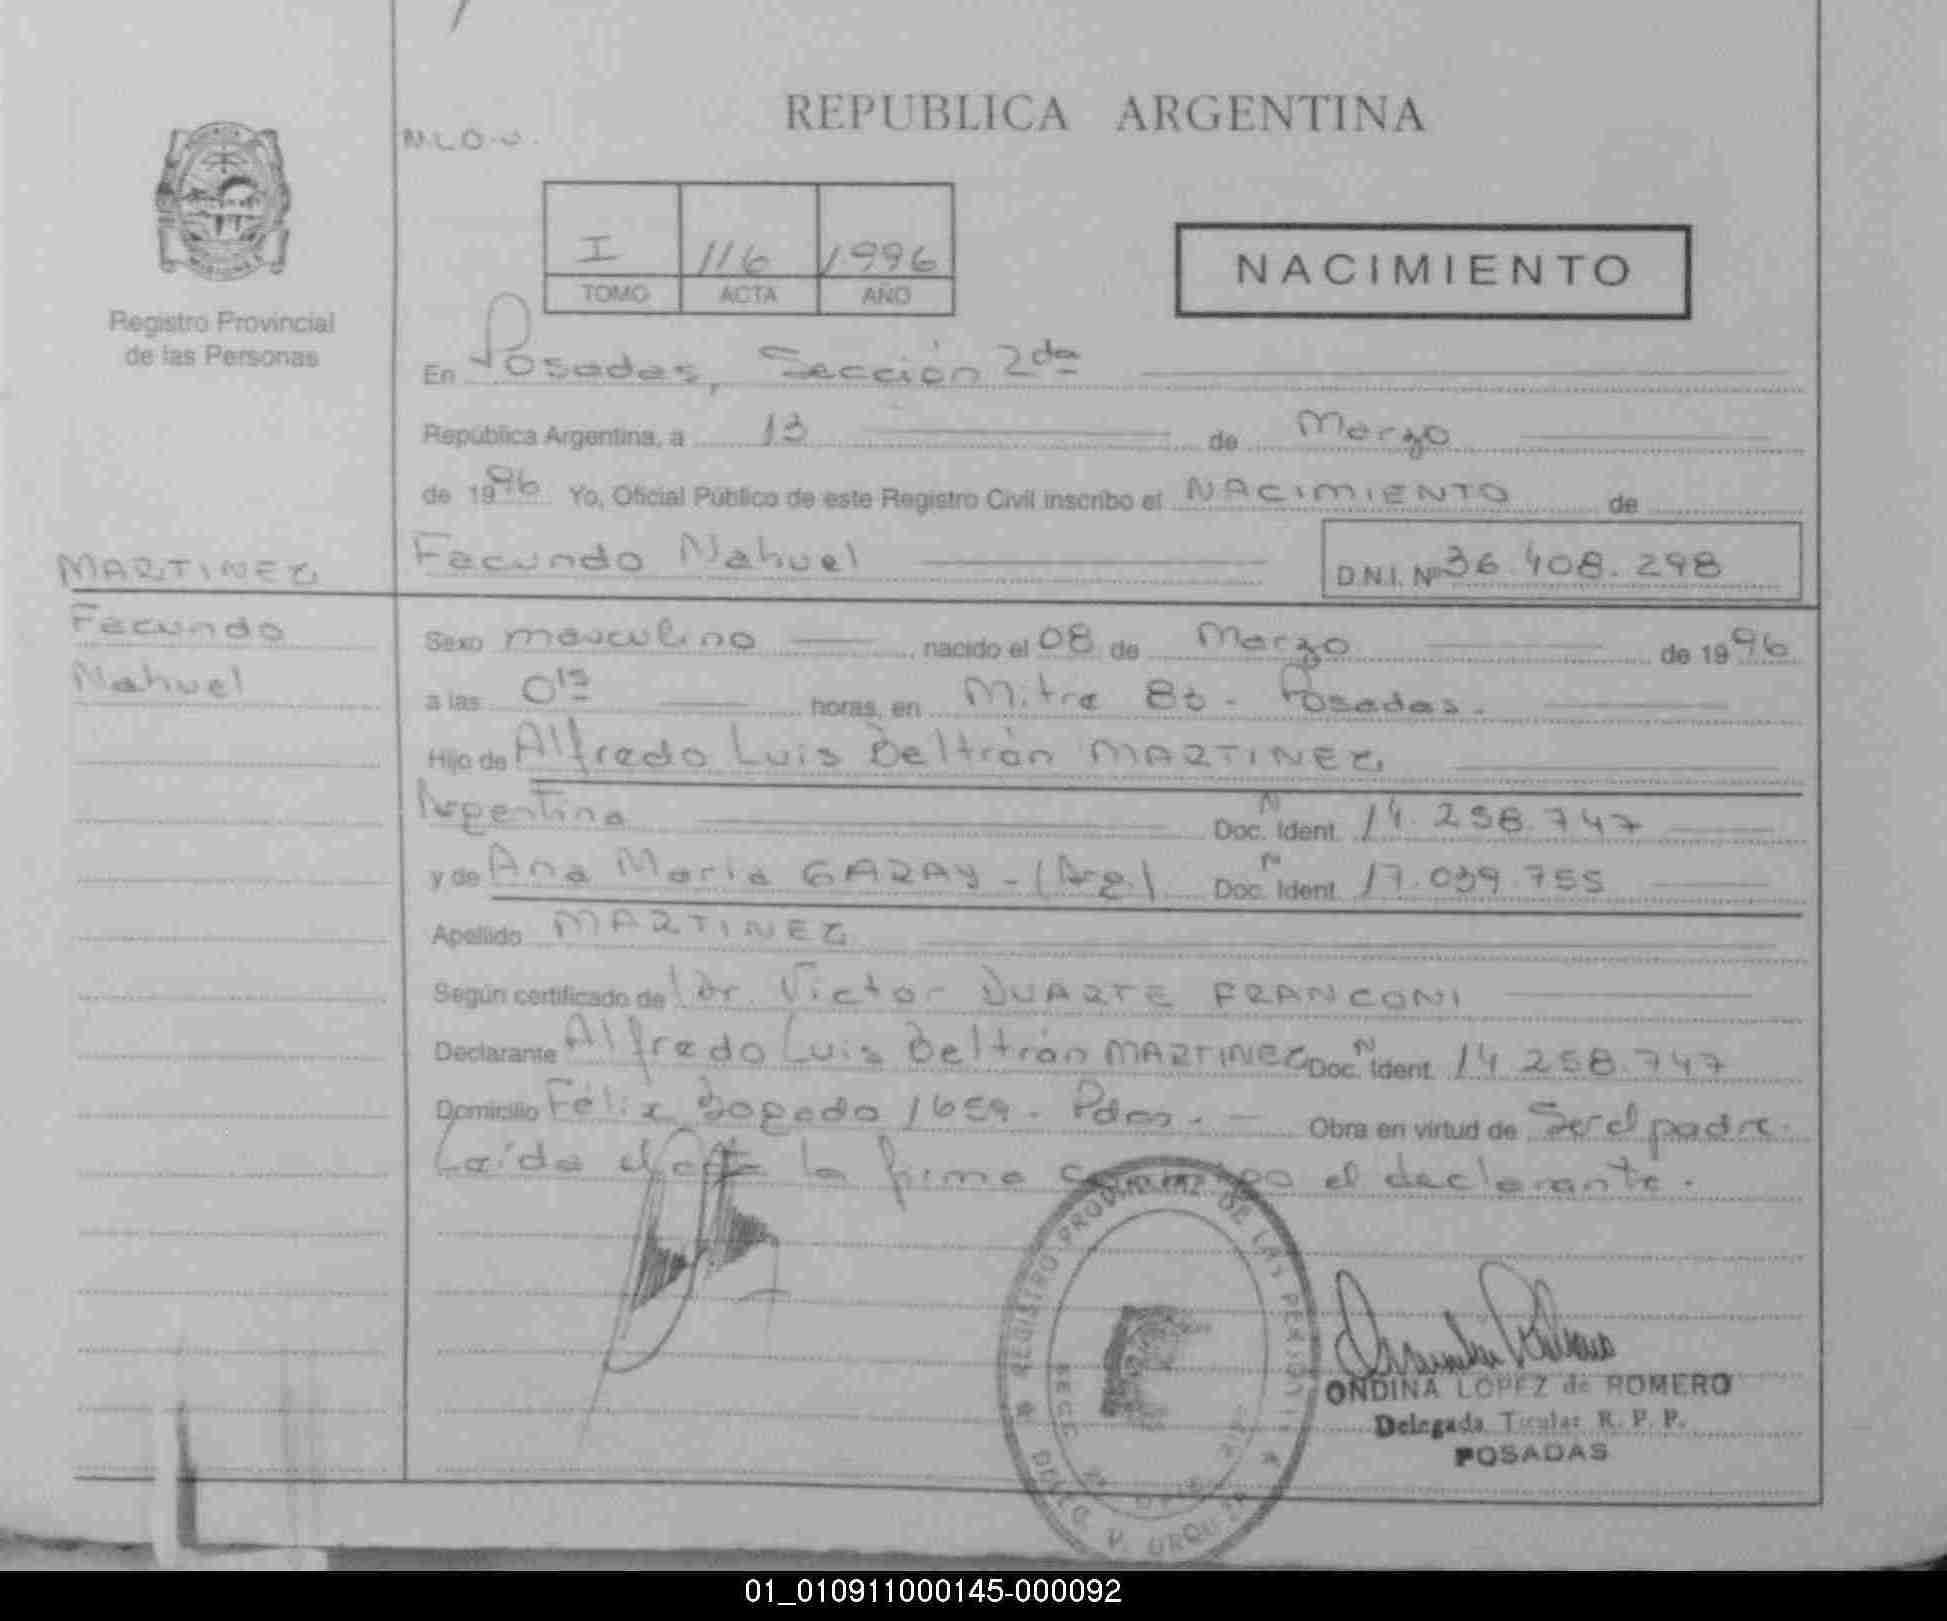 REPUBLICA ARGENTINA
I 116 1996
TOMO ACTA AÑO
NACIMIENTO
Registro Provincial
de las Personas
En Posadas, Sección 2da
República Argentina, a 13 de Marzo
de 1996 Yo, Oficial Público de este Registro Civil inscribo el NACIMIENTO de
MARTINEZ
Facundo
Nahuel
Facundo Nahuel D.N.I. Nº 36.408.298
Sexo masculino nacido el 08 de Marzo de 1996
a las 0 15 horas, en Mitre - Posadas.
Hijo de Alfredo Luis Beltrán MARTINEZ
Argentino N Doc. Ident. 14.258.747
y de Ana María GARAY - (Arg.) N Doc. Ident. 17.039.755
Apellido MARTINEZ
Según certificado de Dr. Victor DUARTE FRANCONI
Declarante Alfredo Luis Beltrán MARTINEZ N Doc. Ident. 14.258.747
Domicilio Félix Bogado 1659. Pdas. - Obra en virtud de Ser el padre.
Leída el acta la firma conmigo el declarante.
REGISTRO PROVINCIAL DE LAS PERSONAS
ONDINA LOPEZ de ROMERO
Delegada Titular R. P. P.
POSADAS
01_010911000145-000092